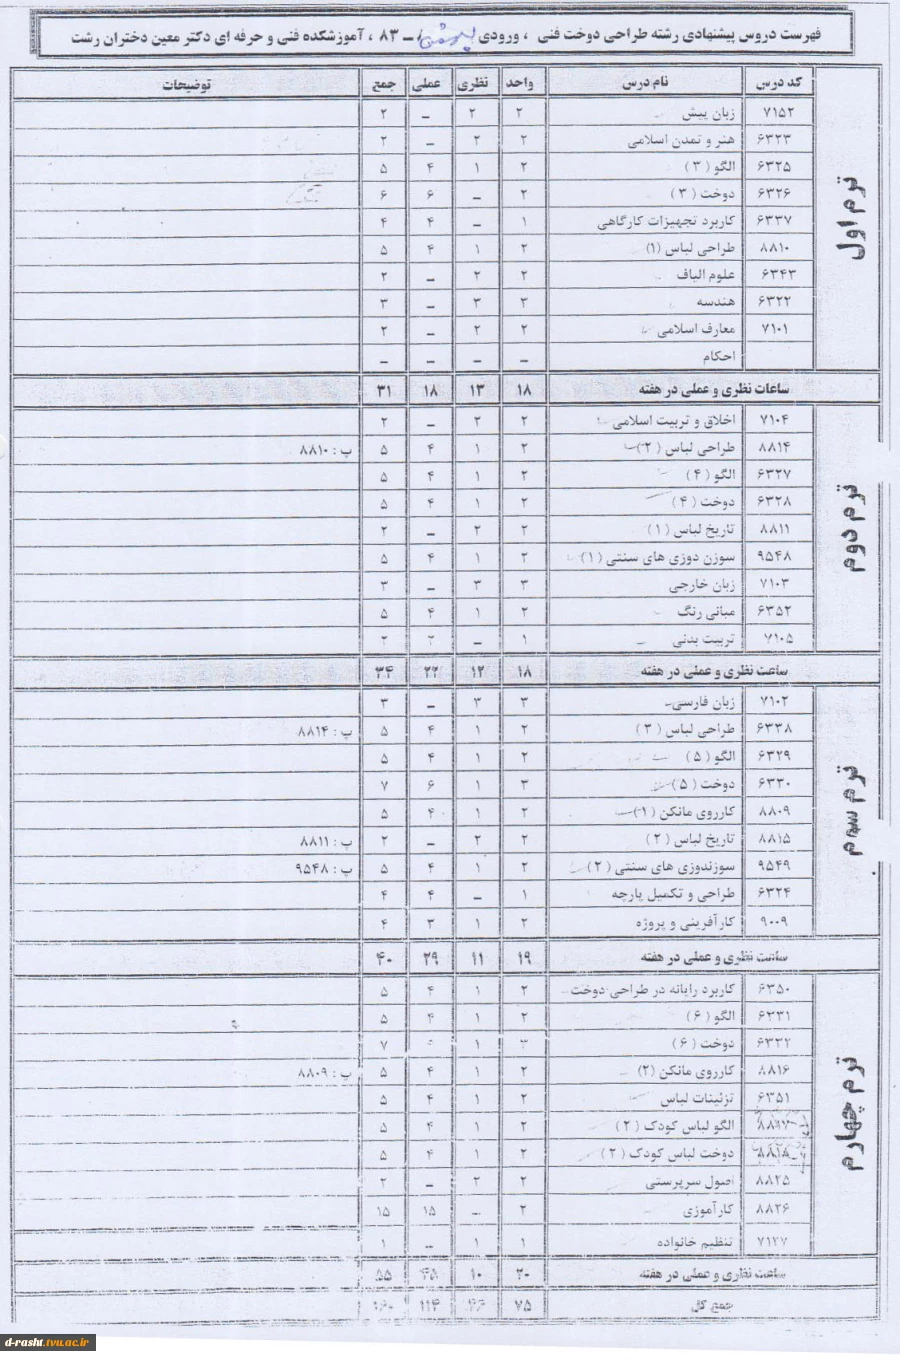 فهرست دروس پیشنهادی رشته طراحی دوخت فنی ، ورودی ۸۳ ، آموزشکده فنی و حرفه ای دکتر معین دختران رشت
کد درس نام درس واحد نظری عملی جمع توضیحات
ترم اول
۷۱۵۲ زبان پیش ۲ ۲ – ۲
۶۳۲۳ هنر و تمدن اسلامی ۲ ۲ – ۲
۶۳۲۵ الگو (۳) ۲ ۱ ۴ ۵
۶۳۲۶ دوخت (۳) ۲ – ۶ ۶
۶۳۳۷ کاربرد تجهیزات کارگاهی ۱ – ۴ ۴
۸۸۱۰ طراحی لباس (۱) ۲ ۱ ۴ ۵
۶۳۴۳ علوم الیاف ۲ ۲ – ۲
۶۳۲۲ هندسه ۳ ۳ – ۳
۷۱۰۱ معارف اسلامی ۲ ۲ – ۲
احکام – – – –
ساعات نظری و عملی در هفته ۱۸ ۱۳ ۱۸ ۳۱
ترم دوم
۷۱۰۴ اخلاق و تربیت اسلامی ۲ ۲ – ۲
۸۸۱۴ طراحی لباس (۲) ۲ ۱ ۴ ۵ پ : ۸۸۱۰
۶۳۲۷ الگو (۴) ۲ ۱ ۴ ۵
۶۳۲۸ دوخت (۴) ۲ ۱ ۴ ۵
۸۸۱۱ تاریخ لباس (۱) ۲ ۲ – ۲
۹۵۴۸ سوزن دوزی های سنتی (۱) ۲ ۱ ۴ ۵
۷۱۰۳ زبان خارجی ۳ ۳ – ۳
۶۳۵۲ مبانی رنگ ۲ ۱ ۴ ۵
۷۱۰۵ تربیت بدنی ۱ – ۲ ۲
ساعت نظری و عملی در هفته ۱۸ ۱۲ ۲۲ ۳۴
ترم سوم
۷۱۰۲ زبان فارسی ۳ ۳ – ۳
۶۳۳۸ طراحی لباس (۳) ۲ ۱ ۴ ۵ پ : ۸۸۱۴
۶۳۲۹ الگو (۵) ۲ ۱ ۴ ۵
۶۳۳۰ دوخت (۵) ۳ ۱ ۶ ۷
۸۸۰۹ کارروی مانکن (۱) ۲ ۱ ۴ ۵
۸۸۱۵ تاریخ لباس (۲) ۲ ۲ – ۲ پ : ۸۸۱۱
۹۵۴۹ سوزندوزی های سنتی (۲) ۲ ۱ ۴ ۵ پ : ۹۵۴۸
۶۳۲۴ طراحی و تکمیل پارچه ۱ – ۴ ۴
۹۰۰۹ کارآفرینی و پروژه ۲ ۱ ۳ ۴
ساعت نظری و عملی در هفته ۱۹ ۱۱ ۲۹ ۴۰
ترم چهارم
۶۳۵۰ کاربرد رایانه در طراحی دوخت ۲ ۱ ۴ ۵
۶۳۳۱ الگو (۶) ۲ ۱ ۴ ۵
۶۳۳۲ دوخت (۶) ۳ ۱ ۷
۸۸۱۶ کارروی مانکن (۲) ۲ ۱ ۴ ۵ پ : ۸۸۰۹
۶۳۵۱ تزئینات لباس ۲ ۱ ۴ ۵
الگو لباس کودک (۲) ۲ ۱ ۴ ۵
دوخت لباس کودک (۲) ۲ ۱ ۴ ۵
۸۸۲۵ اصول سرپرستی ۲ ۲ – ۲
۸۸۲۶ کارآموزی ۲ – ۱۵ ۱۵
۷۱۲۷ تنظیم خانواده ۱ ۱ – ۱
ساعت نظری و عملی در هفته ۲۰ ۱۰ ۴۵ ۵۵
جمع کل ۷۵ ۴۶ ۱۱۴ ۱۶۰
d-rasht.tvu.ac.ir